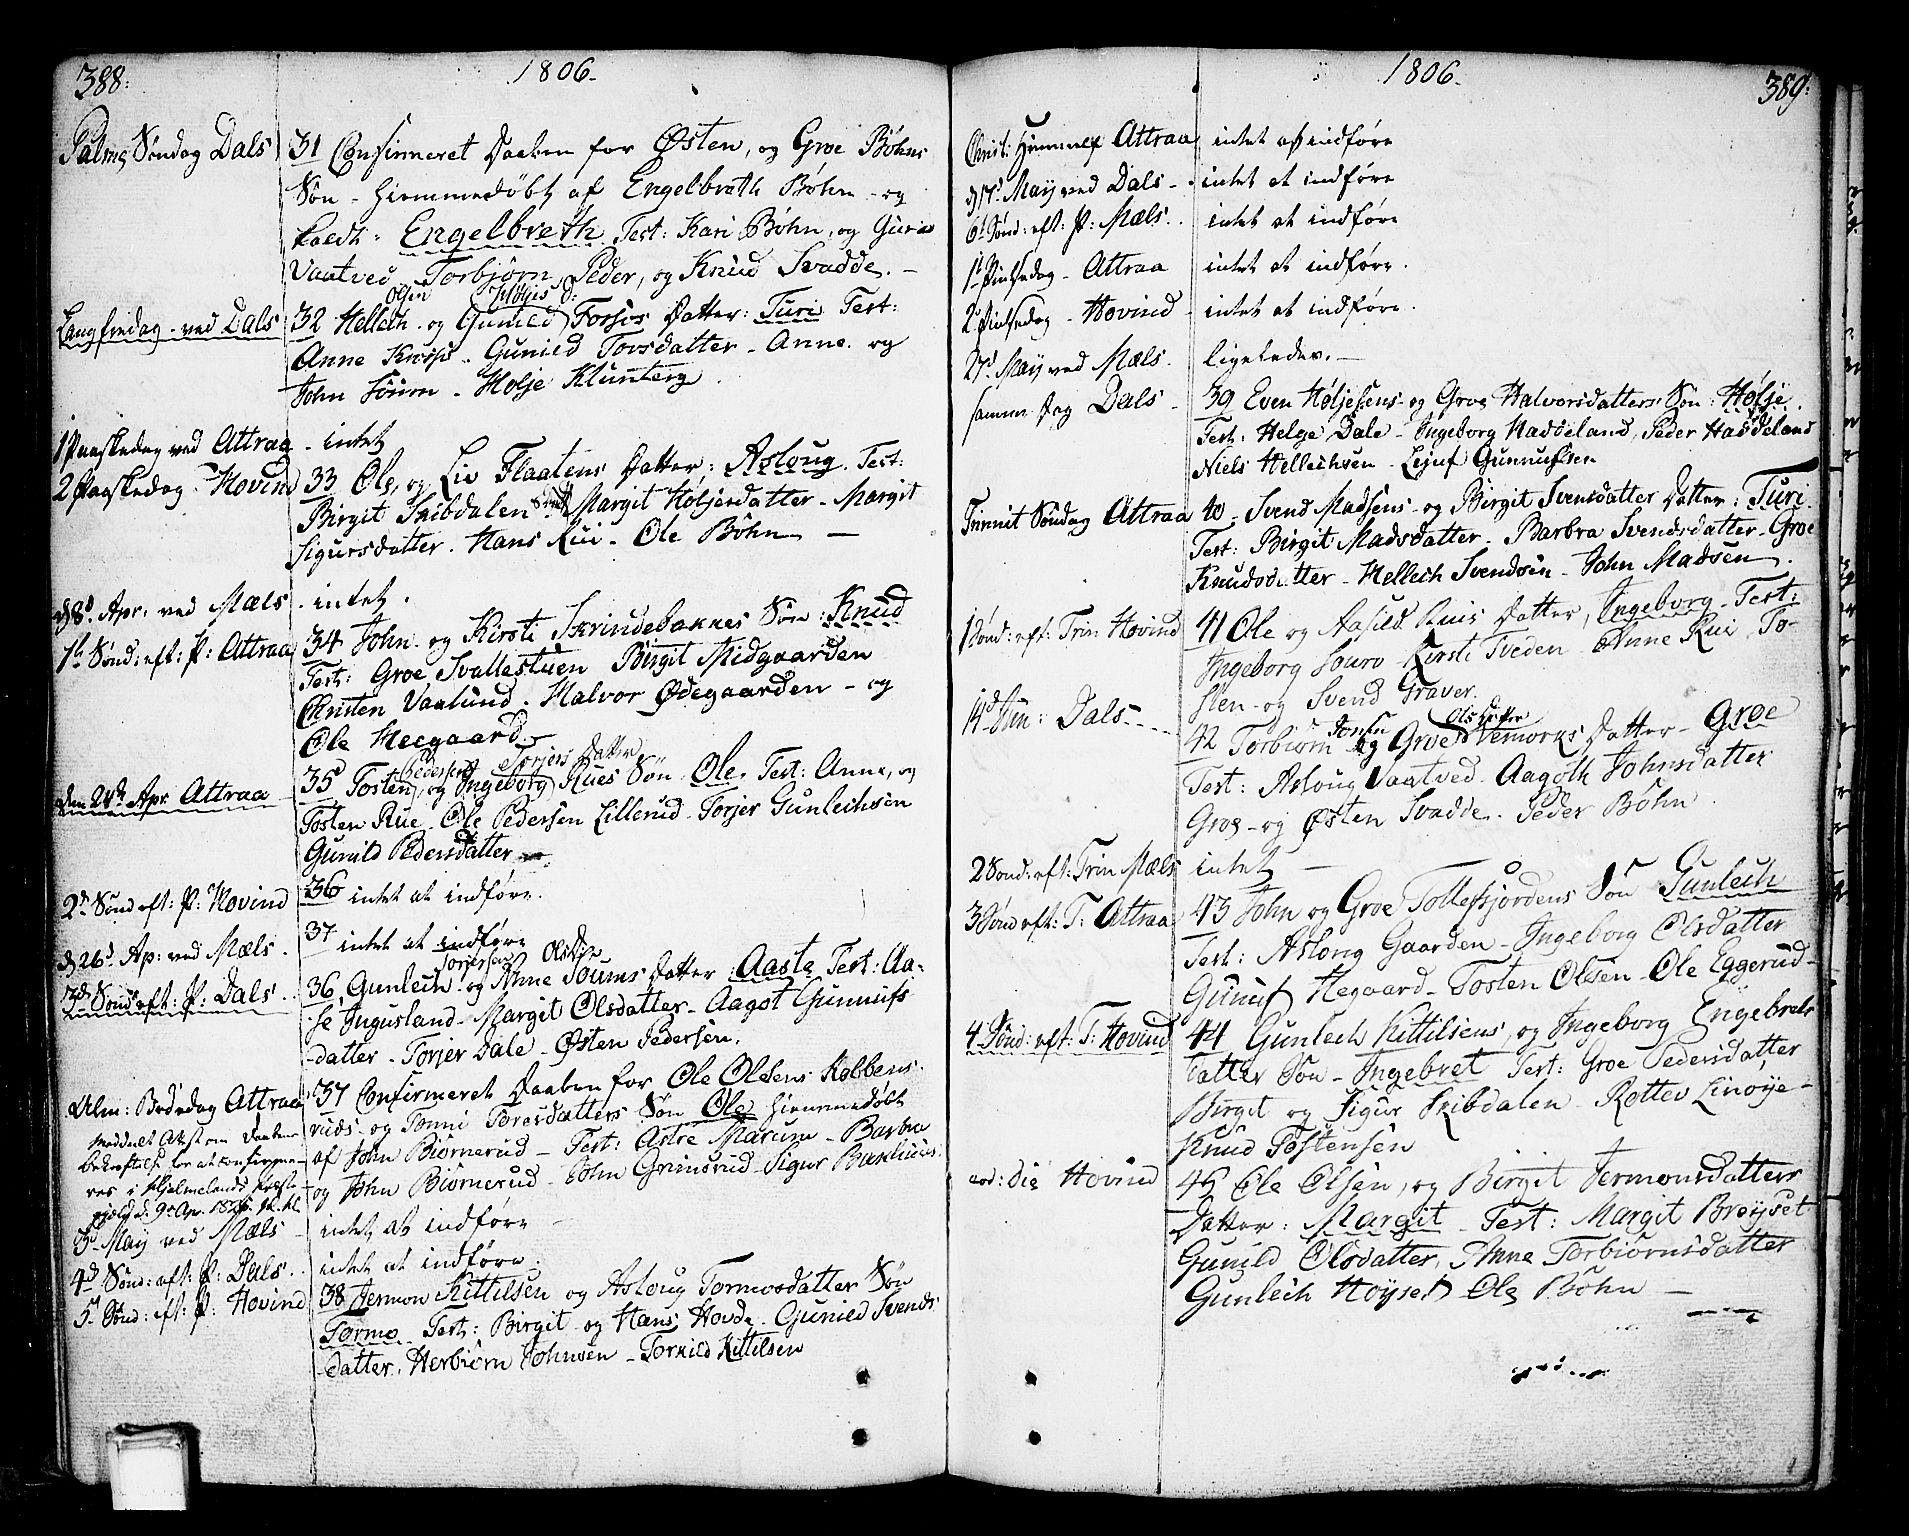 388: 1806.
Palme Søndag Dals 31 Confirmeret Daaben for Østen, og Groe Bøhns
Søn - hiemmedøbt af Engelbreth Bøhn - og
kaldt: Engelbreth Test: Kari Bøhn, og Guri
Vaatved Torbjørn, Peder, og Knud Svadde. -
Langfredag - ved Dals 32 Hellech og Gunild Datter: Turi Test:
Anne - Gunild Torsdatter - Anne og
John - Holje
1 Paaskedag ved Attraa - intet
2 Paaskedag - Hovind 33 Ole, og Liv Flaatens Datter: Asloug. Test:
Birgit Skibdalen Margit Høljesdatter - Margit
Sigursdatter. Hans Rui - Ole Bøhn -
d 8d Apr: ved Mæls - intet.
1ste Sønd: eft: P: Attraa 34 John og Kirsti Skrindebakkes Søn: Knud
Test: Groe Svallestuen Birgit Midgaarden
Christen Vaalund. Halvor Ødegaarden - og
Ole Heegaard -
Pedersen Torjers Datter
Den 24d Apr Attraa 35 Tosten, og Ingeborg Rues Søn Ole. Test: Anne, og
Tosten Rue - Ole Pedersen Lillerud - Torjer Gunlechsen
Gunild Pedersdatter -
2n Sønd eft: P: Hovind 36 intet at indføre.
d 26d Ap: ved Mæls. 37 intet at indføre
3d Sønd eft: P: Dals 36 Gunlech og Anne Datter: Aaste Test: Aa-
se Ingusland - Margit Olsdatter - Aagot Gunnufs
-datter - Torjer Dale - Østen Pedersen.
Alm: Bededag Attraa 37 Confirmeret Daaben for Ole Olesens
og Tore Toresdatters Søn Ole hiemmedøbt
af John Biørnerud - Test: Marum - Barbra
og John Biørnerud - John Grimsrud - Sigur
3d May ved Mæls - intet at indføre -
4d Sønd: eft: P: Dals. intet at indføre.
5t Sønd: eft: P: Hovind 38 Jermon Kittilsen og Aslaug Tormosdatter Søn
Tormo Test: Birgit og Hans Hovde - Gunild Svends
-datter. Herbiørn Johnsen - Torkild Kittilsen
1806. 389:
Christ: Himmelf Attraa intet at indføre
d 17d May ved Dals - intet at indføre
6t Sønd: eft: P: Mæls. intet at indføre
1st Pintsedag - Attraa intet at indføre.
2 Pintsedag - Hovind intet at indføre.
27d May ved Mæls. ligeledes. -
samme Dag Dals - 39 Even Høljesens og Groe Halvorsdatters Søn: Hølje.
Test: Helge Dale - Ingeborg Haddeland, Peder Haddeland
Niels Hellechsen - Lejuf Gunnufsen
Trinit Søndag Attraa 40 - Svend Madsens - og Birgit Svensdatter Datter: Turi.
Test: Birgit Madsdatter - Barbra Svendsdatter - Groe
Knudsdatter - Hellech Svendsen - John Madsen.
1 Sønd: eft: Trin Hovind 41 Ole og Aasild Ruis Datter, Ingeborg - Test:
Ingeborg - Kirsti Tveden Anne Rui To-
sten - og Svend Graver.
Olsdatter
14d Jun: Dals - - - 42 Torbiørn og Groe Vemorks Datter - Groe
Test: Asloug Vaatved. Aagoth Johnsdatter
Groe - og Østen Svadde. Peder Bøhn.
2 Sønd: eft: Trin Mæls intet -
3 Sønd eft: T: Attraa 43 John og Groe Tollefsjordens Søn Gunlech
Test: Aslong Gaarden - Ingeborg Olsdatter
Gunuf Hegaard - Tosten Olsen - Ole Eggerud -
4 Sønd: eft: T: Hovind 44 Gunlech Kittilsens, og Ingeborg Engebrets
Datter Søn - Ingebret Test: Groe Pedersdatter
Birget og Sigur Skibdalen Linøye -
Knud Tostensen
eod: die Hovind 45 Ole Olsen, og Birgit Jermonsdatters
Datter: Margit - Test: Margit Brøyset
Gunild Olsdatter, Anne Torbiørnsdatter
Gunlech Høyset Ole Bøhn -